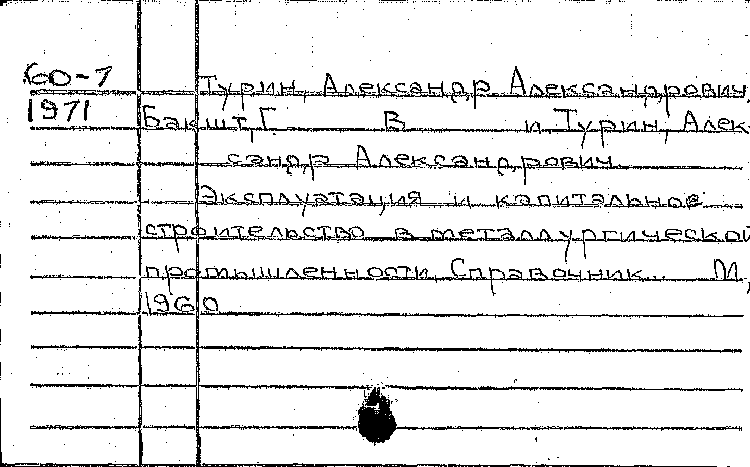 60-7 Турин, Александр Александрович
1971 Бакшт, Г. В. и Турин, Алек-
сандр Александрович
Эксплуатация и капитальное
строительство в металлургической
промышленности. Справочник. М,
1960